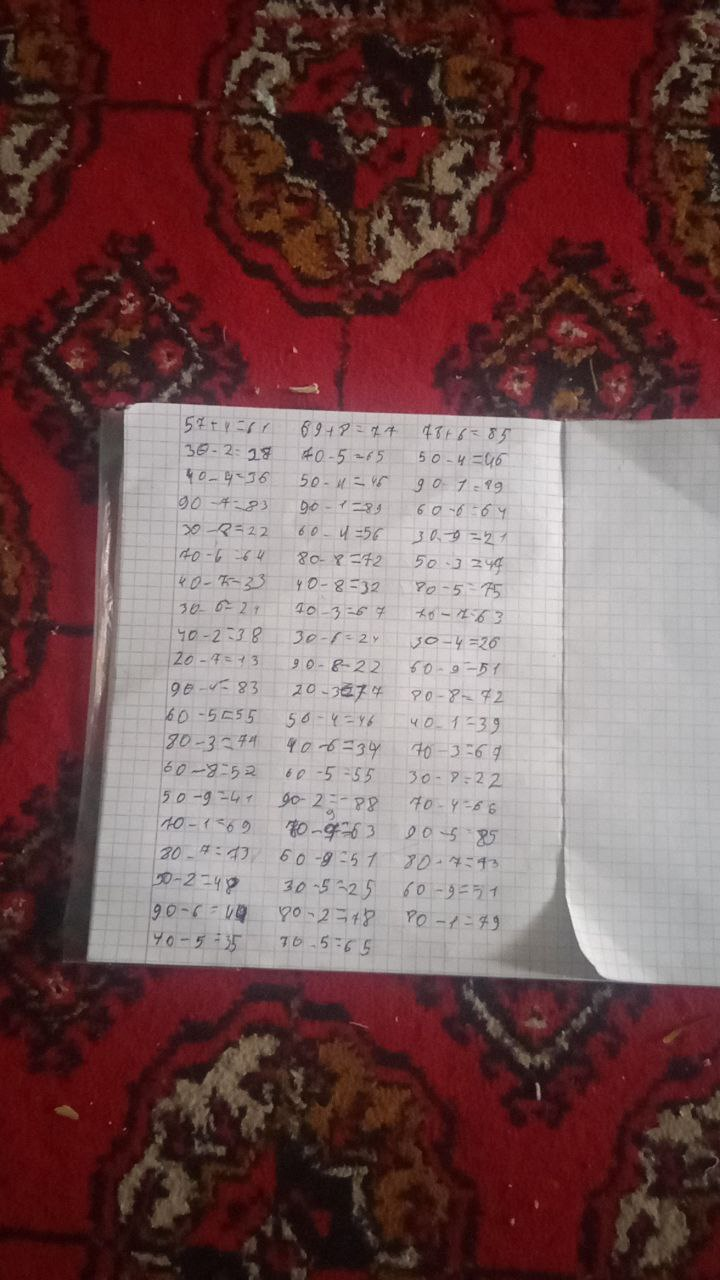 57+4=61 69+8=77 78+6=85
30-2=28 70-5=65 50-4=46
40-4=36 50-4=46 90-1=89
90-7=83 90-1=89 60-6=64
30-8=22 60-4=56 30-9=21
70-6=64 80-8=72 50-3=47
40-7=33 40-8=32 80-5=75
30-6=24 70-3=67 70-7=63
40-2=38 30-6=24 30-4=26
20-7=13 90-8=22 60-9=51
90-4=83 20-3=17 80-8=72
60-5=55 50-4=46 40-1=39
80-3=77 40-6=34 70-3=67
60-8=52 60-5=55 30-8=22
50-9=41 90-2=88 70-4=66
70-1=69 70-9=63 90-5=85
80-7=73 60-9=51 80-7=73
50-2=48 30-5=25 60-9=51
90-6=44 80-2=78 80-1=79
40-5=35 70-5=65